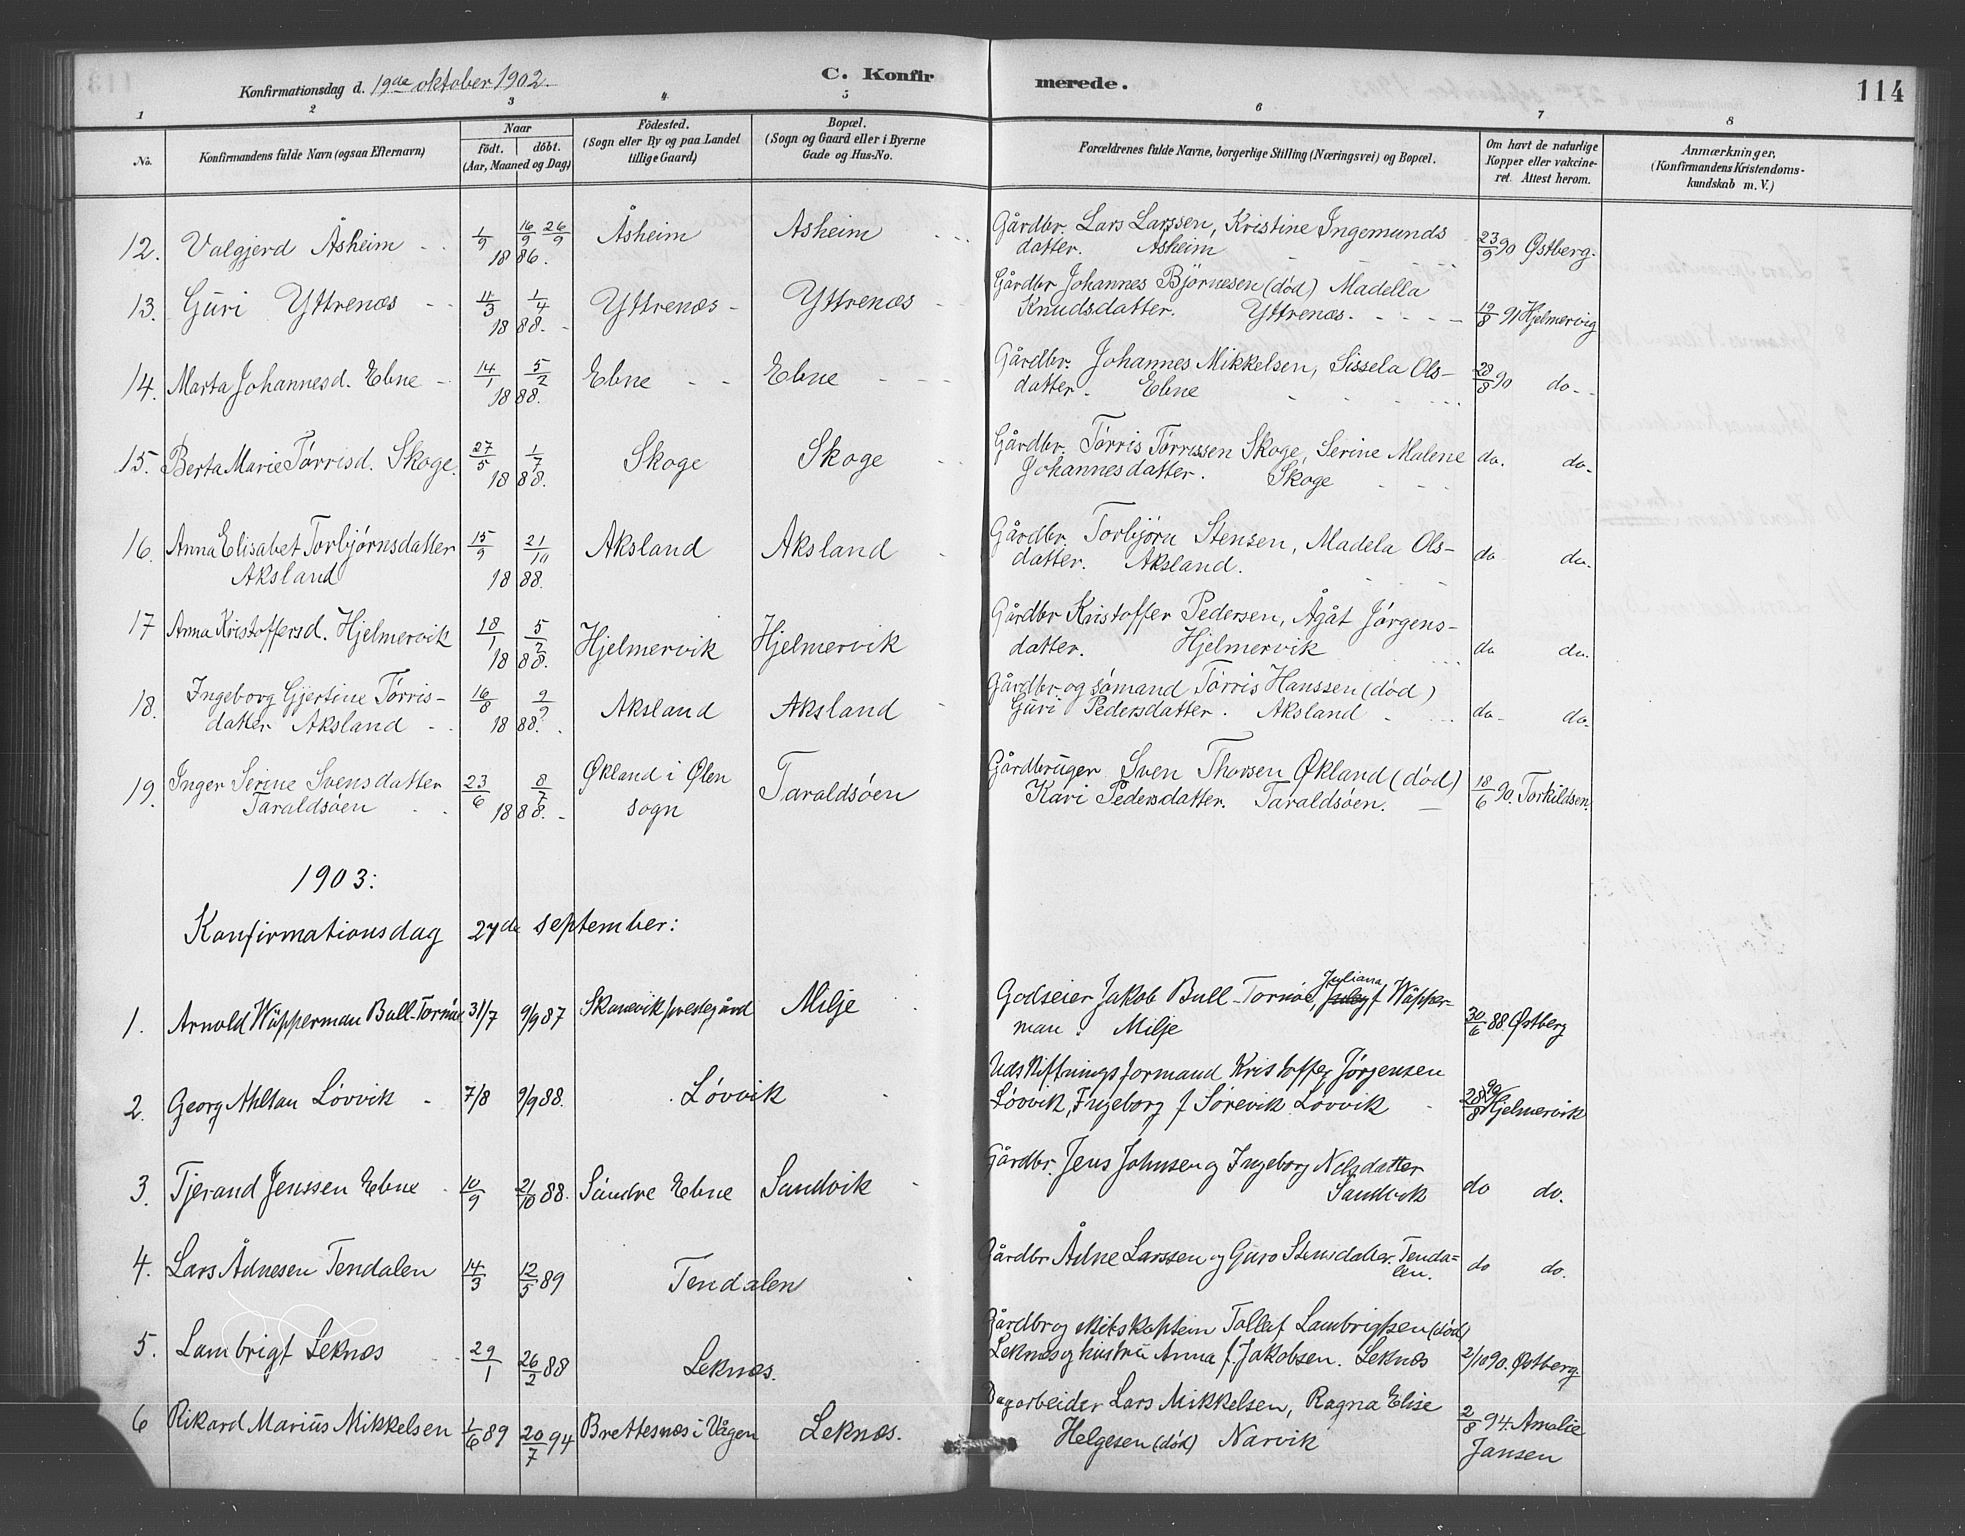 Konfirmationsdag d. 19de oktober 1902. C. Konfirmerede. 114
1 2 3 4 5 6 7 8
No. Konfirmandens fulde Navn (ogsaa Efternavn) Naar født. døbt. (Aar, Maaned og Dag) Fødested. (Sogn eller By og paa Landet tillige Gaard) Bopæl. (Sogn og Gaard eller i Byerne Gade og Hus-No. Forældrenes fulde Navne, borgerlige Stilling (Næringsvei) og Bopæl. Om havt de naturlige Kopper eller vakcineret. Attest herom. Anmærkninger, (Konfirmandens Kristendomskundskab m. V.)
12. Valgjerd Åsheim 1/9 16/9 26/9 1886. Åsheim Asheim Gårdbr. Lars Larssen, Kristine Ingemunds
datter. Asheim 23/9 90 Østberg.
13. Guri Yttrenæs 11/3 1/4 1888. Yttrenæs Yttrenæs Gårdbr Johannes Björnesen (död) Madella
Knudsdatter. Yttrenæs. 19/8 91 Hjelmervig
14. Marta Johannesd. Ebne 14/1 5/2 1888. Ebne Ebne Gårdbr. Johannes Mikkelsen, Sissela Ols-
datter. Ebne 28/8 90 do
15. Berta Marie Tørrisd. Skoge. 27/5 1/7 1888. Skoge Skoge Gårdbr. Tørris Tørrissen Skoge, Serine Malene
Johannesdatter. Skoge do. do.
16. Anna Elisabet Torbjørnsdatter
Aksland 15/9 21/10 1888. Aksland Aksland Gårdbr. Torbjørn Stensen, Madela Ols-
datter. Aksland. do do.
17 Anna Kristoffersd. Hjelmervik 18/1 5/2 1888. Hjelmervik Hjelmervik Gårdbr Kristoffer Pedersen, Ågåt Jørgens-
datter. Hjelmervik do do.
18. Ingeborg Gjertine Tørris-
datter Aksland 16/8 2/9 1888. Aksland Aksland Gårdbr og sømand Tørris Hanssen (død)
Guri Pedersdatter. Aksland do do.
19. Inger Serine Svensdatter
Taraldsøen 23/6 8/7 1888. Økland i Ølen
sogn Taraldsøen Gårdbruger Sven Thorsen Økland (död)
Kari Pedersdatter. Taraldsøen. 18/6 90. Torkildsen.
1903:
Konfirmationsdag 27de september:
1. Arnold Wüpperman Bull-Tornøe 31/7 9/9 87 Skånevik prestegård Milje Godseier Jakob Bull-Tornöe, Juliana f Wüpper-
man. Milje 30/6 88. Østberg
2. Georg Ahltan Løvvik 7/8 9/9 88. Løvvik Udskiftningsformand Kristoffer Jørgensen
Løvvik, Ingeborg f Sørevik Løvvik 28/8 90 Hjelmervik
3. Tjerand Jenssen Ebne 10/9 21/10 88. Søndre Ebne Sandvik Gårdbr. Jens Johnsen og Ingeborg Nelsdatter
Sandvik do do.
4. Lars Ådnesen Tendalen 14/3 12/5 89 Tendalen Gårdbr. Ådne Larssen og Guro Stensdatter. Tenda-
len. do do.
5. Lambrigt Leknæs 29/1 26/2 88 Leknæs. Gårdbr og skibskaptein Tollef Lambrigtsen (død)
Leknæs og hustru Anna f. Jakobsen. Leknæs 2/10 90. Østberg
6 Rikard Marius Mikkelsen 1/6 89 20/7 94 Brettesnæs i Vågen Leknæs. Bagarbeider Lars Mikkelsen, Ragna Elise
Helgesen (død) Narvik 2/8 94. Amalie
Jansen